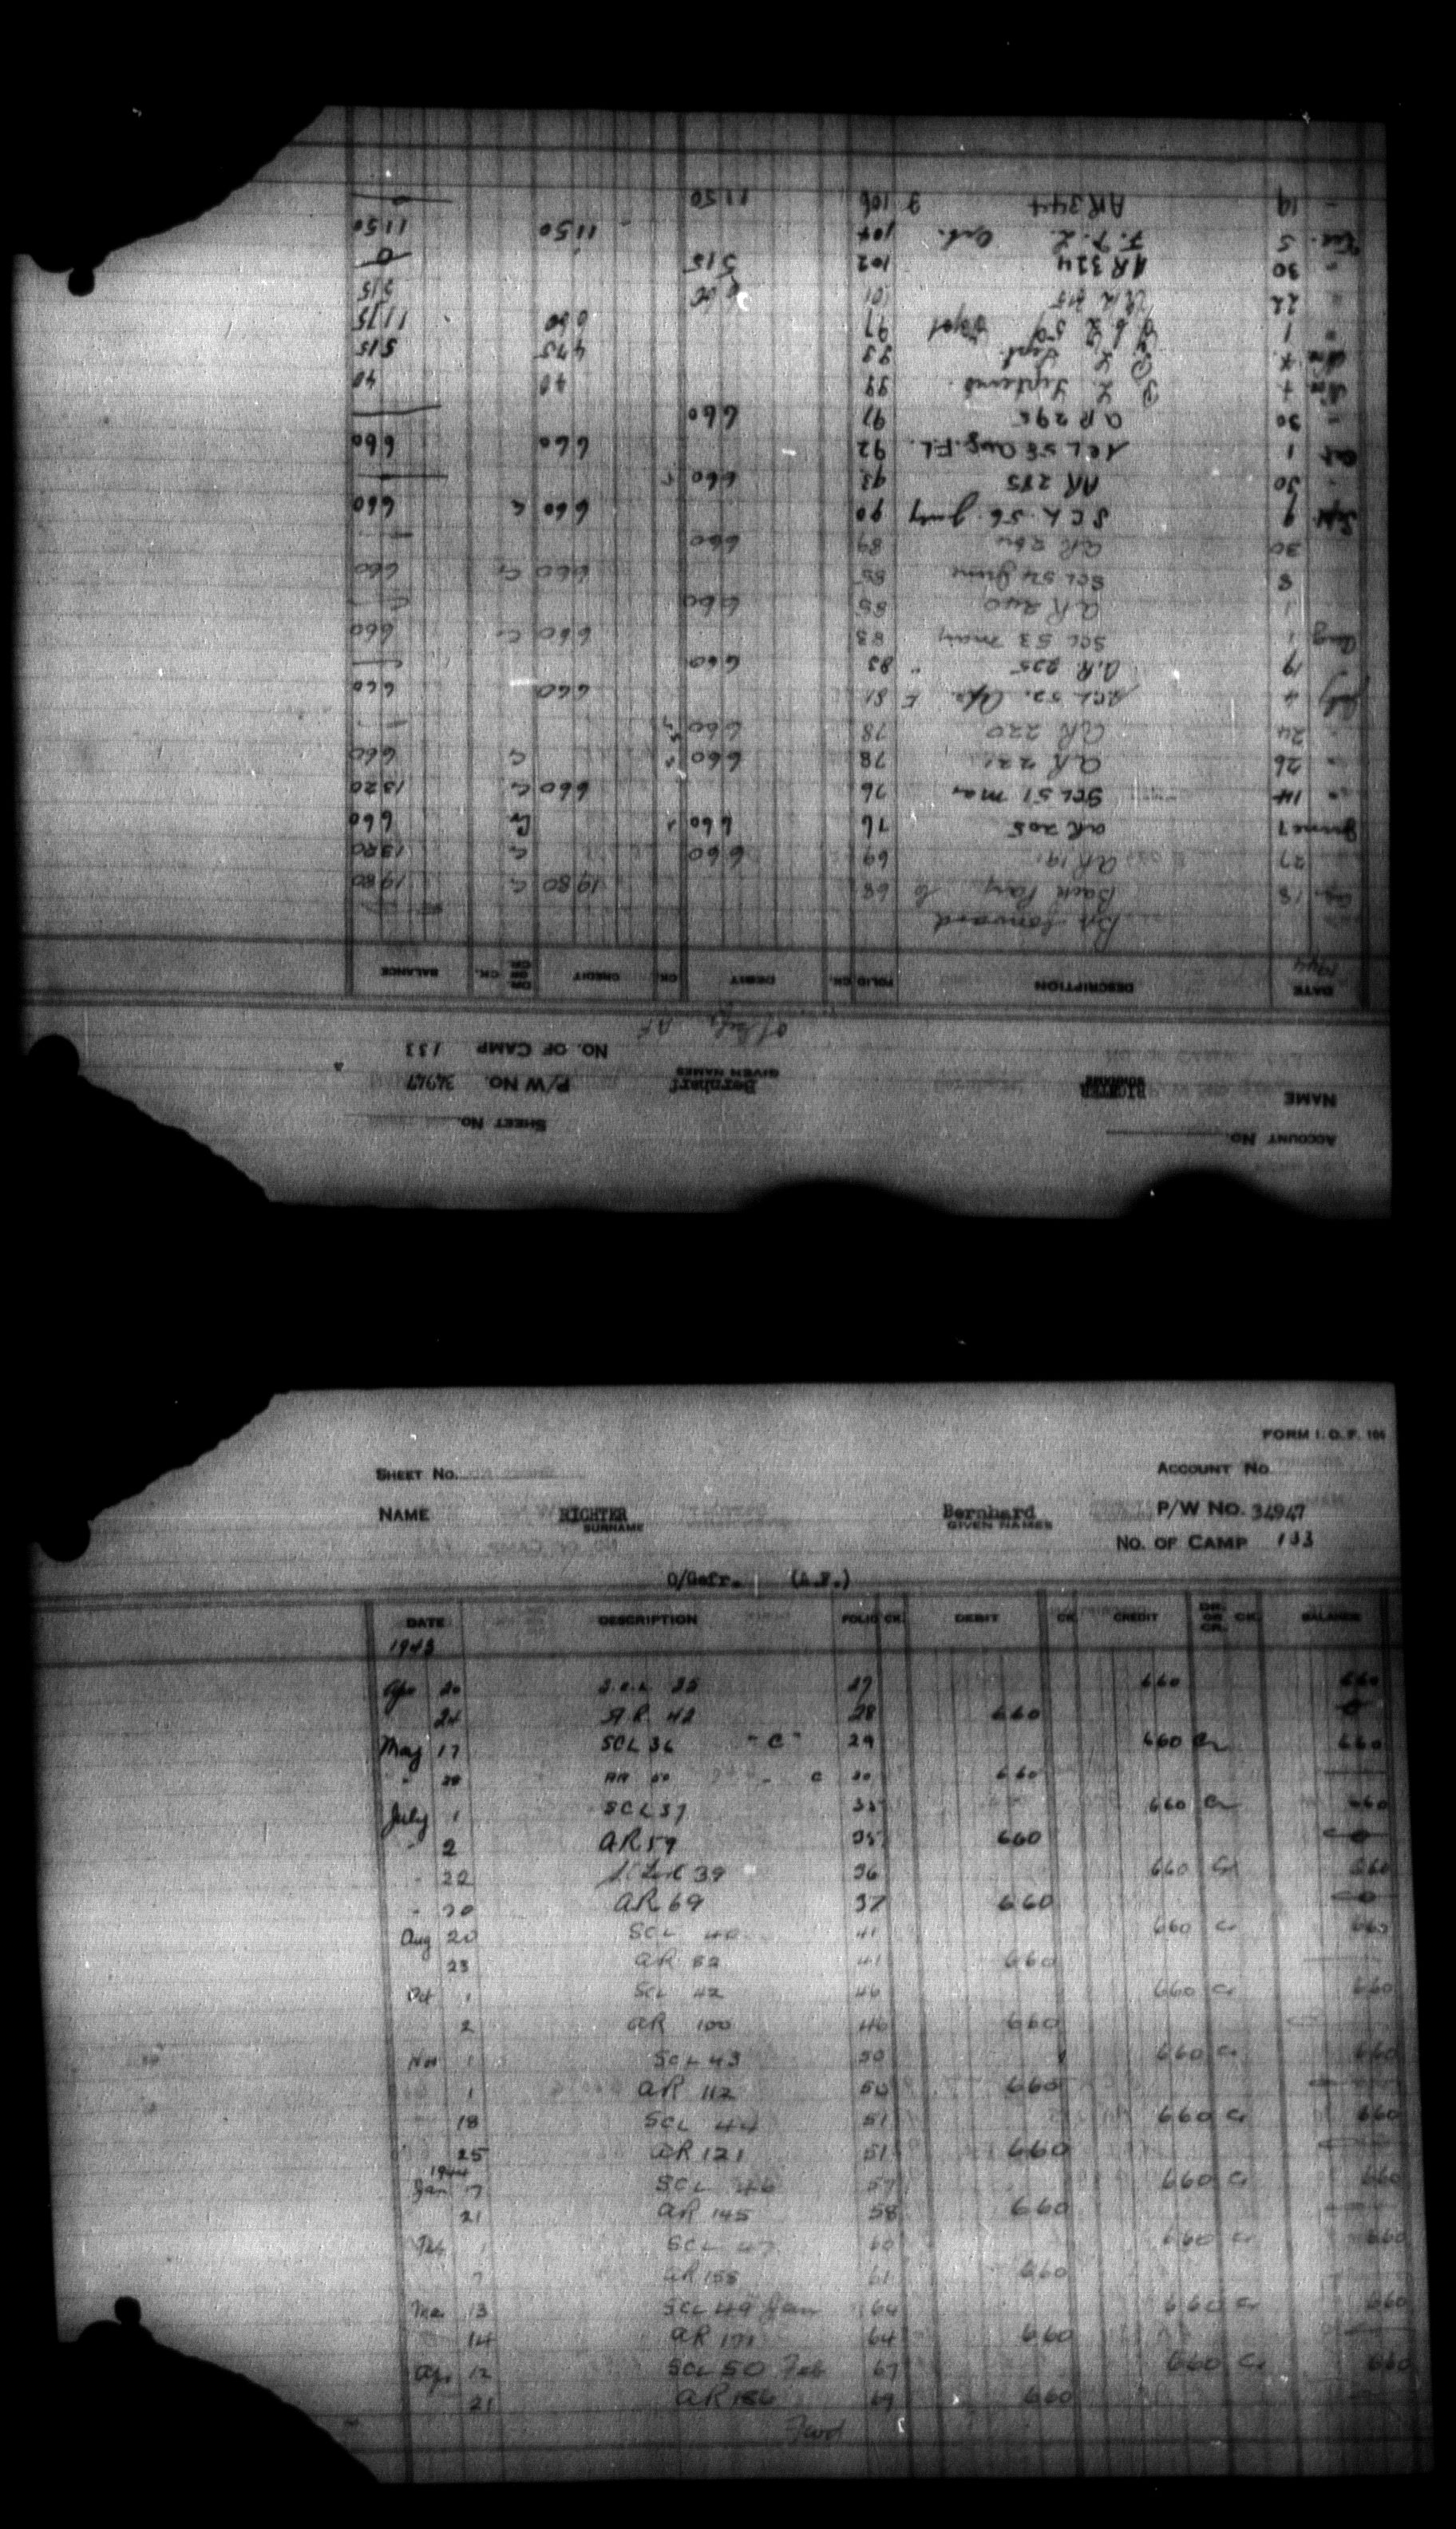 FORM I.O.F. 104
SHEET No. ACCOUNT No
NAME RICHTER Bernhard P/W NO. 34947
SURNAME GIVEN NAMES
NO. OF CAMP 133
O/Gefr. (A.F.)
DATE DESCRIPTION FOLIO CK. DEBIT CK. CREDIT DR. OR CR. CK. BALANCE
1943
Apr 20 S.C.L. 35 27 660 660
24 A.R. 42 28 660 0
May 17 SCL 36 "C" 29 660 Cr 660
" AR 50 C 30 660
July 1 SCL 37 35 660 Cr 660
" 2 AR 59 35 660 0
" 22 39 36 660 Cr 660
" 30 AR 69 37 660 0
Aug 20 SCL 40 41 660 Cr 660
23 AR 82 41 660
Oct 1 SCL 42 46 660 Cr 660
2 AR 100 46 660
Nov 1 SCL 43 50 660 Cr 660
1 AR 112 50 660
18 SCL 44 51 660 Cr 660
25 AR 121 51 660
1944
Jan 17 SCL 46 57 660 Cr 660
21 AR 145 58 660
Feb 1 SCL 47 60 660 Cr 660
7 AR 158 61 660
Mar 13 SCL 49 Jan 64 660 Cr 660
14 AR 171 64 660
Apr 12 SCL 50 Feb 67 660 Cr 660
21 AR 186 69 660
Fwd
ACCOUNT No. SHEET No.
NAME RICHTER Bernhard P/W NO. 34947
SURNAME GIVEN NAMES
NO. OF CAMP 133
DATE DESCRIPTION FOLIO CK. DEBIT CK. CREDIT DR. OR CR. CK. BALANCE
1944
Bt. forward
18 Back Pay 68 1980 Cr 1980
27 AR 191 69 660 Cr 1320
June 7 AR 205 76 660 Cr 660
" 14 SCL 51 Mar 76 660 Cr 1320
" 26 AR 221 78 660 Cr 660
" 24 AR 220 78 660
July 4 SCL 52. Apr. F 81 660 660
" 19 A.R. 235 " 83 660
Aug 1 SCL 53 May 83 660 Cr 660
1 AR 240 85 660
8 SCL 54 June 85 660 Cr 660
30 AR 264 89 660
Sept 9 SCL 56 July 90 660 Cr 660
" 30 AR 285 93 660
Oct 1 SCL 58 Aug. F.L. 92 660 660
" 30 AR 295 97 660
Nov 99 40 40
Nov Sept. 99 475 515
" 1 Sept 97 660 1175
" 22 101 660 515
" 30 AR 324 102 515 0
Dec. 5 104 1150 1150
" 19 AR 344 106 1150